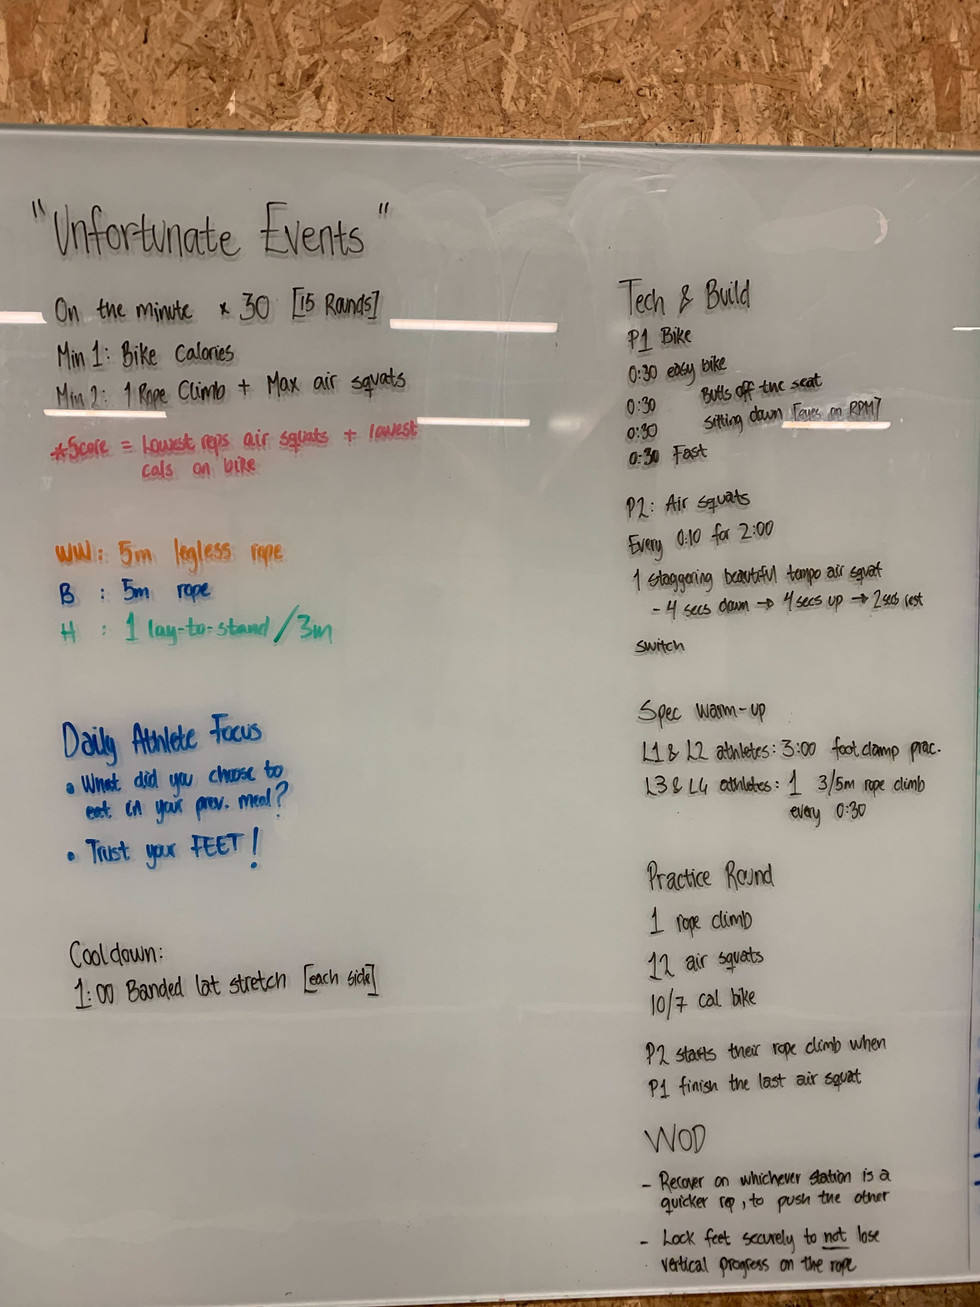 "Unfortunate Events"
On the minute x 30 [15 Rounds]
Min 1: Bike Calories
Min 2: 1 Rope Climb + Max air squats
*Score = Lowest reps air squats + lowest
cals on bike
WW: 5m legless rope
B : 5m rope
H : 1 lay-to-stand/3m
Daily Athlete Focus
• What did you choose to
eat in your prev. meal?
• Trust your FEET!
Cooldown:
1:00 Banded lat stretch [each side]
Tech & Build
P1 Bike
0:30 easy bike
0:30 Butts off the seat
0:30 sitting down [eyes on RPM]
0:30 Fast
P2: Air squats
Every 0:10 for 2:00
1 staggering beautiful tempo air squat
- 4 secs down → 4 secs up → 2 secs rest
switch
Spec warm-up
L1 & L2 athletes: 3:00 foot clamp prac.
L3 & L4 athletes: 1 3/5m rope climb
every 0:30
Practice Round
1 rope climb
12 air squats
10/7 cal bike
P2 starts their rope climb when
P1 finish the last air squat
WOD
- Recover on whichever station is a
quicker rep, to push the other
- Lock feet securely to not lose
vertical progress on the rope